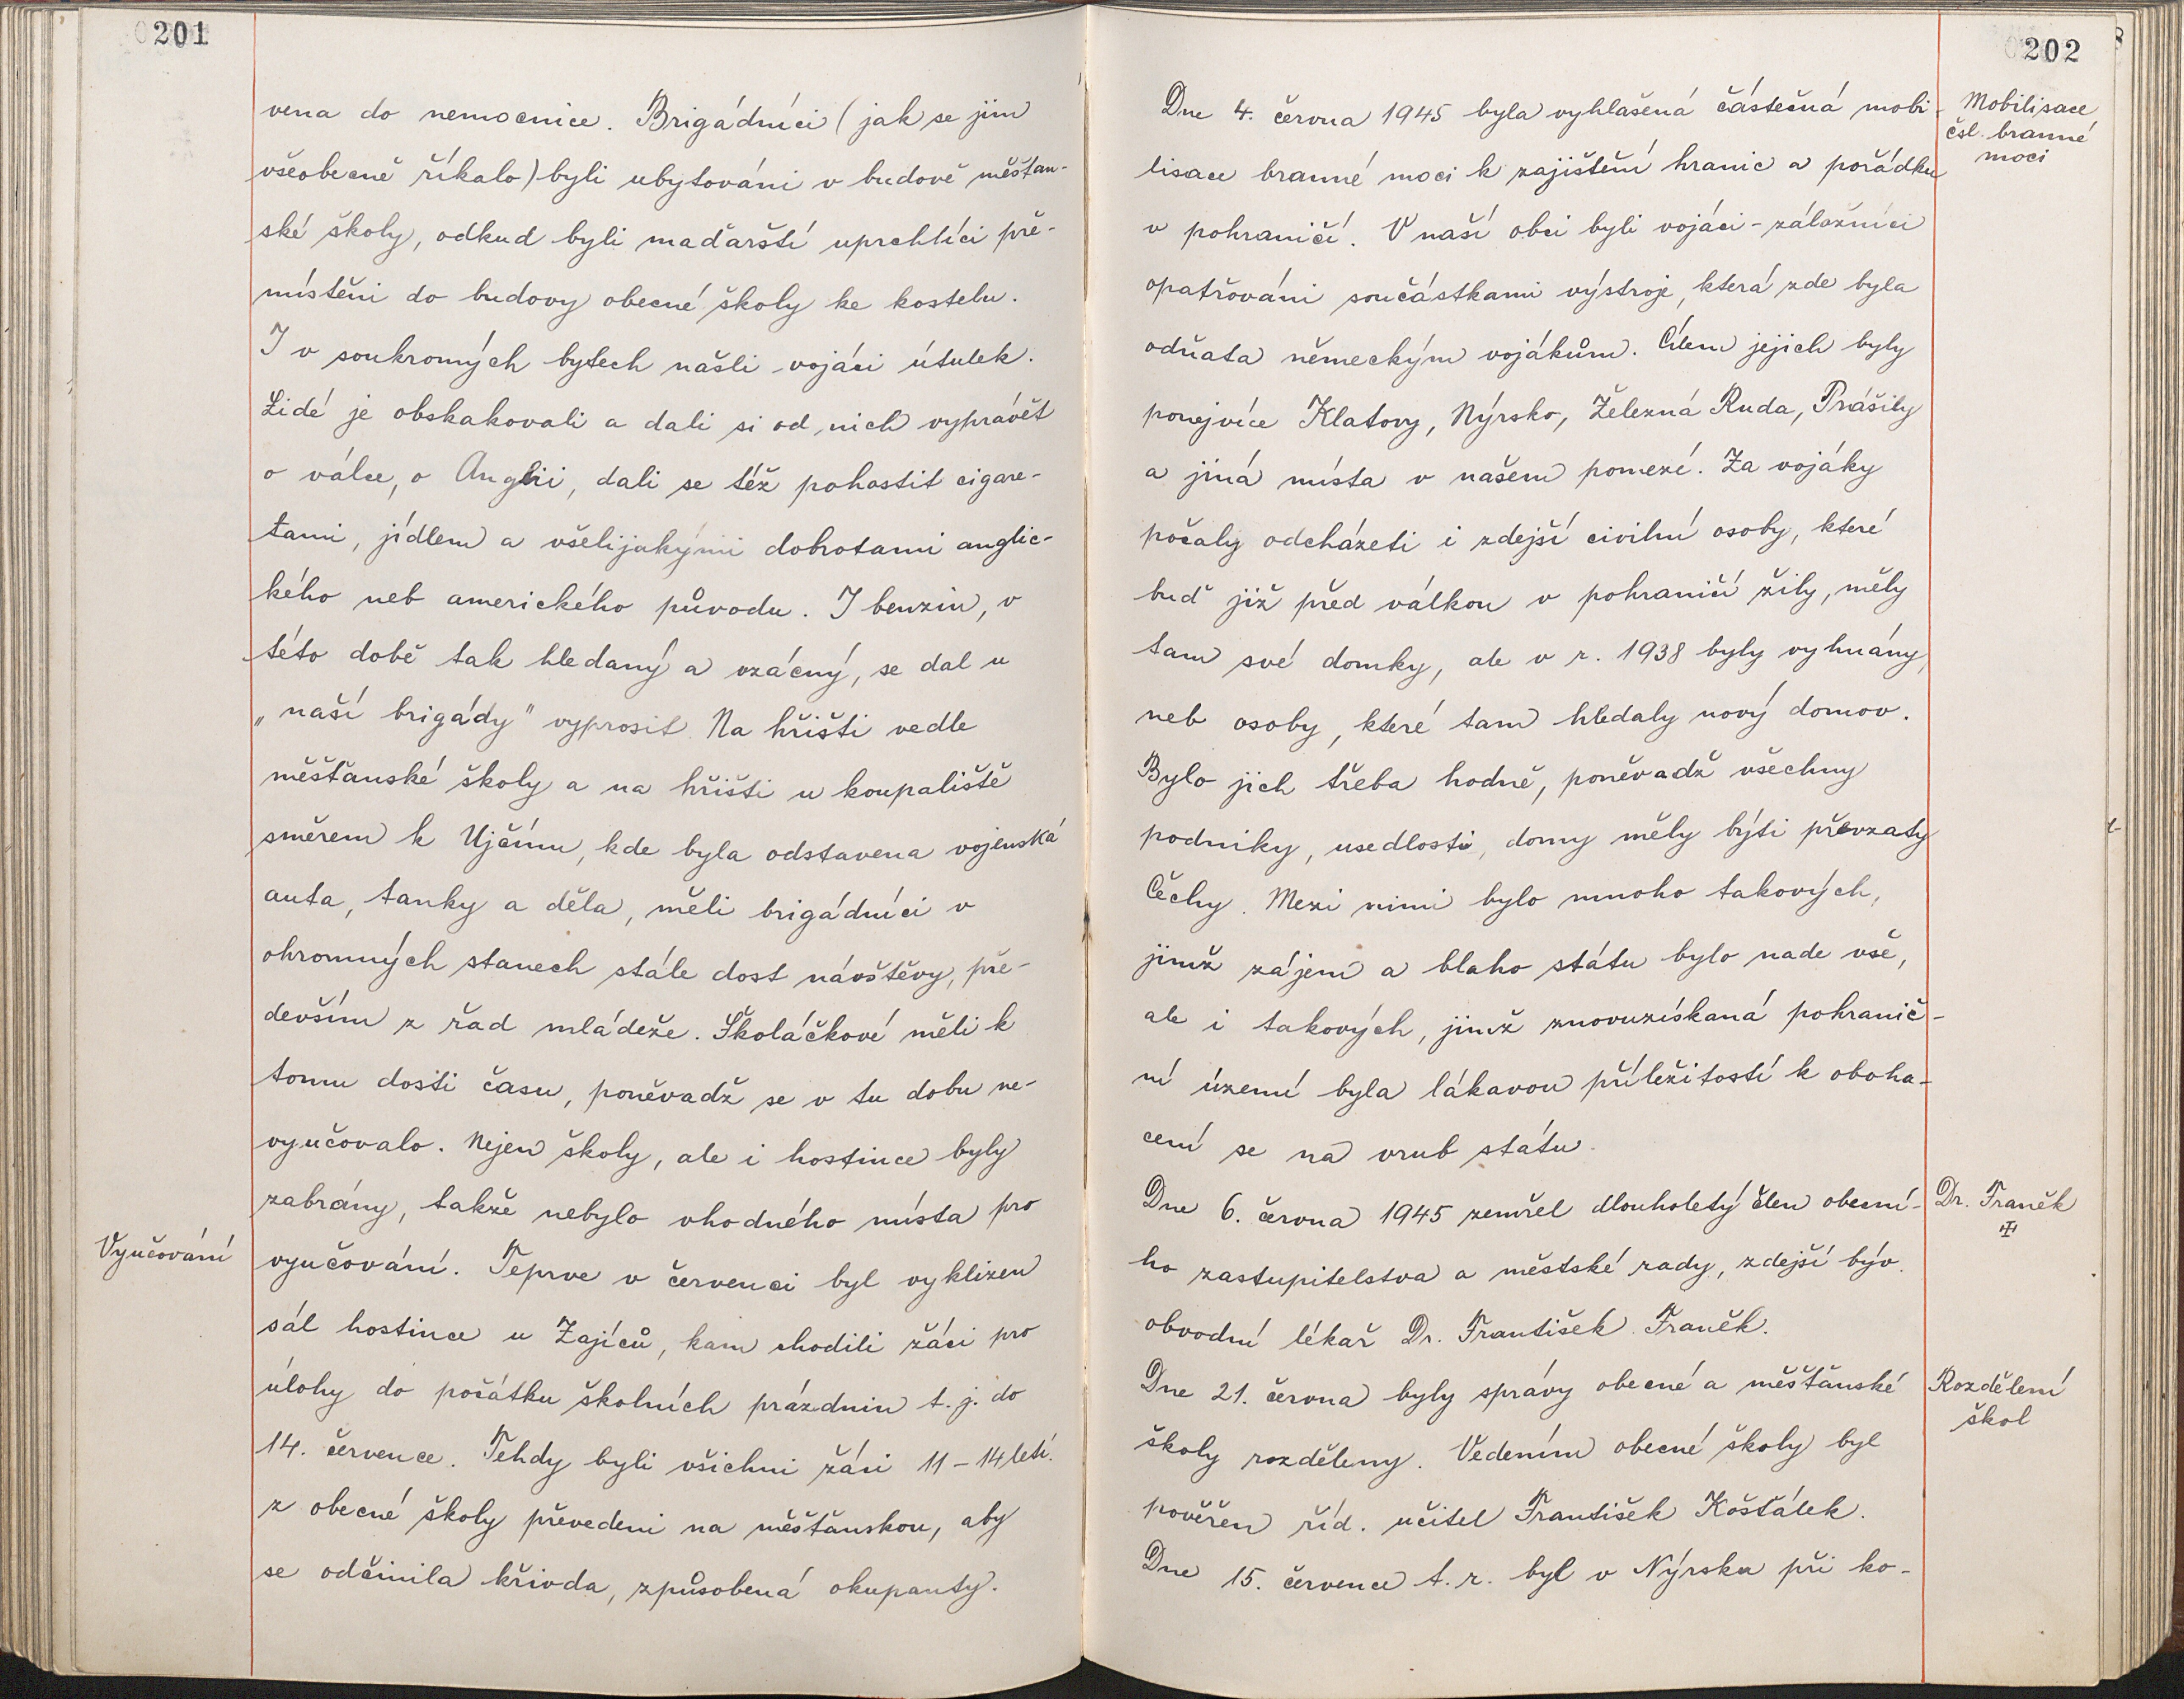 201
vena do nemocnice. Brigádníci (jak se jim
všeobecně říkalo) byli ubytováni v budově měšťan-
ské školy, odkud byli maďarští uprchlíci pře-
místěni do budovy obecné školy ke kostelu.
I v soukromých bytech našli vojáci útulek.
Lidé je obskakovali a dali si od nich vyprávět
o válce, o Anglii, dali se též pohostit cigare-
tami, jídlem a všelijakými dobrotami anglic-
kého neb amerického původu. I benzin, v
této době tak hledaný a vzácný, se dal u
„naší brigády" vyprosit. Na hřišti vedle
měšťanské školy a na hřišti u koupaliště
směrem k Ujčínu, kde byla odstavena vojenská
auta, tanky a děla, měli brigádníci v
ohromných stanech stále dost návštěvy, pře-
devším z řad mládeže. Školáčkové měli k
tomu dosti času, poněvadž se v tu dobu ne-
vyučovalo. Nejen školy, ale i hostince byly
zabrány, takže nebylo vhodného místa pro
Vyučování
vyučování. Teprve v červenci byl vyklizen
sál hostince u Zajíců, kam chodili žáci pro
úlohy do počátku školních prázdnin t. j. do
14. července. Tehdy byli všichni žáci 11 – 14 letí.
z obecné školy převedeni na měšťanskou, aby
se odčinila křivda, způsobená okupanty.
202
Dne 4. června 1945 byla vyhlášená částečná mobi-
Mobilisace
čsl. branné
moci
lisace branné moci k zajištění hranic a pořádku
v pohraničí. V naší obci byli vojáci - záložníci
opatřováni součástkami výstroje, která zde byla
odňata německým vojákům. Cílem jejich byly
ponejvíce Klatovy, Nýrsko, Železná Ruda, Prášily
a jiná místa v našem pomezí. Za vojáky
počaly odcházeti i zdejší civilní osoby, které
buď již před válkou v pohraničí žily, měly
tam své domky, ale v r. 1938 byly vyhnány,
neb osoby, které tam hledaly nový domov.
Bylo jich třeba hodně, poněvadž všechny
podniky, usedlosti, domy měly býti převzaty
Čechy. Mezi nimi bylo mnoho takových,
jimž zájem a blaho státu bylo nade vše,
ale i takových, jimž znovuzískaná pohranič-
ní území byla lákavou příležitostí k oboha-
cení se na vrub státu.
Dne 6. června 1945 zemřel dlouholetý člen obecní-
Dr. Franěk
✠
ho zastupitelstva a městské rady, zdejší býv.
obvodní lékař Dr. František Franěk.
Dne 21. června byly správy obecné a měšťanské
Rozdělení
škol
školy rozděleny. Vedením obecné školy byl
pověřen říd. učitel František Košťálek.
Dne 15. července t. r. byl v Nýrsku při ko-